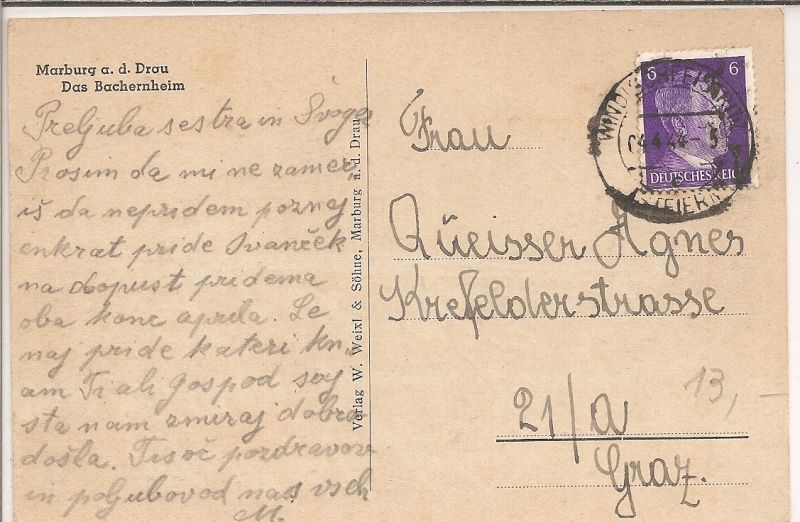 Marburg a. d. Drau
Das Bachernheim
Preljuba sestra in Svoga
Prosim da mi ne zamer
iš da nepridem poznej
enkrat pride Ivanček
na dopust pridema
oba konc aprila. Le
naj pride kateri kn
am Ti ali Gospod saj
sta nam zmiraj dobro
došla. Tisoč pozdravov
in poljubov od nas vseh
M.
Verlag W. Weixl & Söhne, Marburg a. d. Drau
6 6
DEUTSCHES REICH
4.4.44
Frau
Agnes
Krefelderstrasse
13,-
21/a
Graz.